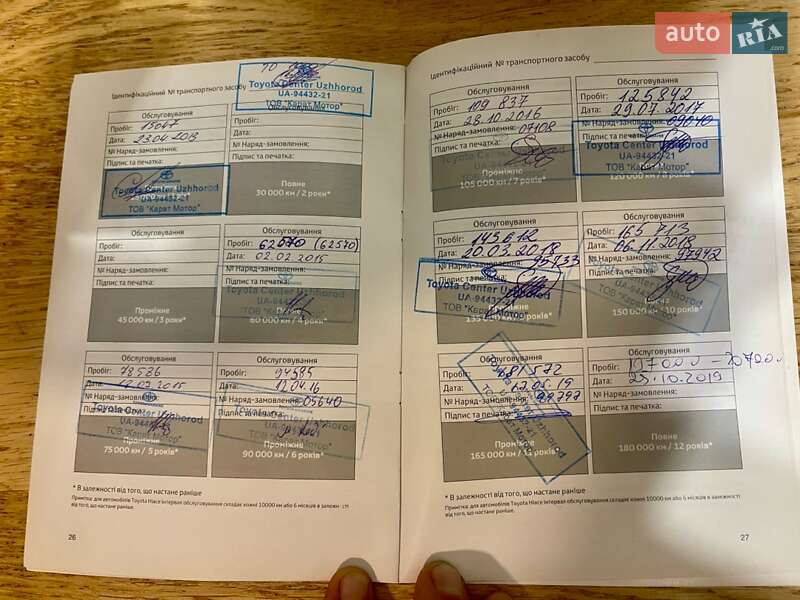 auto RIA .com
Ідентифікаційний № транспортного засобу
Toyota Center Uzhhorod
UA-94432-21
ТОВ "Карат Мотор"
Обслуговування
Пробіг: 15047
Дата: 23.04.2013
№ Наряд-замовлення:
Підпис та печатка:
Toyota Center Uzhhorod
UA-94432-21
ТОВ "Карат Мотор"
Пробіг:
Дата:
№ Наряд-замовлення:
Підпис та печатка:
Повне
30 000 км / 2 роки*
Обслуговування
Пробіг:
Дата:
№ Наряд-замовлення:
Підпис та печатка:
Проміжне
45 000 км / 3 роки*
Обслуговування
Пробіг: 62570 (62570)
Дата: 02.02.2015
№ Наряд-замовлення:
Підпис та печатка:
Toyota Center Uzhhorod
UA-94432-21
ТОВ "Карат Мотор"
60 000 км / 4 роки*
Обслуговування
Пробіг: 78586
Дата:
№ Наряд-замовлення:
Підпис та печатка:
Проміжне
75 000 км / 5 років*
Обслуговування
Пробіг: 94595
Дата: 12.04.16
№ Наряд-замовлення: 05640
Підпис та печатка:
90 000 км / 6 років*
* В залежності від того, що настане раніше
Примітка: для автомобілів Toyota Hiace інтервал обслуговування складає кожні 10000 км або 6 місяців в залежн
від того, що настане раніше.
26
Ідентифікаційний № транспортного засобу
Обслуговування
Пробіг: 109 837
Дата: 28.10.2016
№ Наряд-замовлення: 07108
Підпис та печатка:
Проміжне
105 000 км / 7 років*
Обслуговування
Пробіг: 125842
Дата: 29.07.2017
№ Наряд-замовлення: 09040
Підпис та печатка:
Toyota Center Uzhhorod
UA-94432-21
ТОВ "Карат Мотор"
Обслуговування
Пробіг: 143612
Дата: 20.03.2018
№ Наряд-замовлення: 95733
Підпис та печатка:
Toyota Center Uzhhorod
UA-94432-21
ТОВ "Карат Мотор"
Обслуговування
Пробіг: 165 713
Дата: 06.11.2018
№ Наряд-замовлення: 97942
Підпис та печатка:
150 000 км / 10 років*
Обслуговування
Пробіг: 181572
Дата: 17.05.19
№ Наряд-замовлення:
Підпис та печатка:
Проміжне
165 000 км / 11 років*
Обслуговування
Пробіг: 197000 -
Дата: 23.10.2019
№ Наряд-замовлення:
Підпис та печатка:
Повне
180 000 км / 12 років*
* В залежності від того, що настане раніше
Примітка: для автомобілів Toyota Hiace інтервал обслуговування складає кожні 10000 км або 6 місяців в залежності
від того, що настане раніше.
27